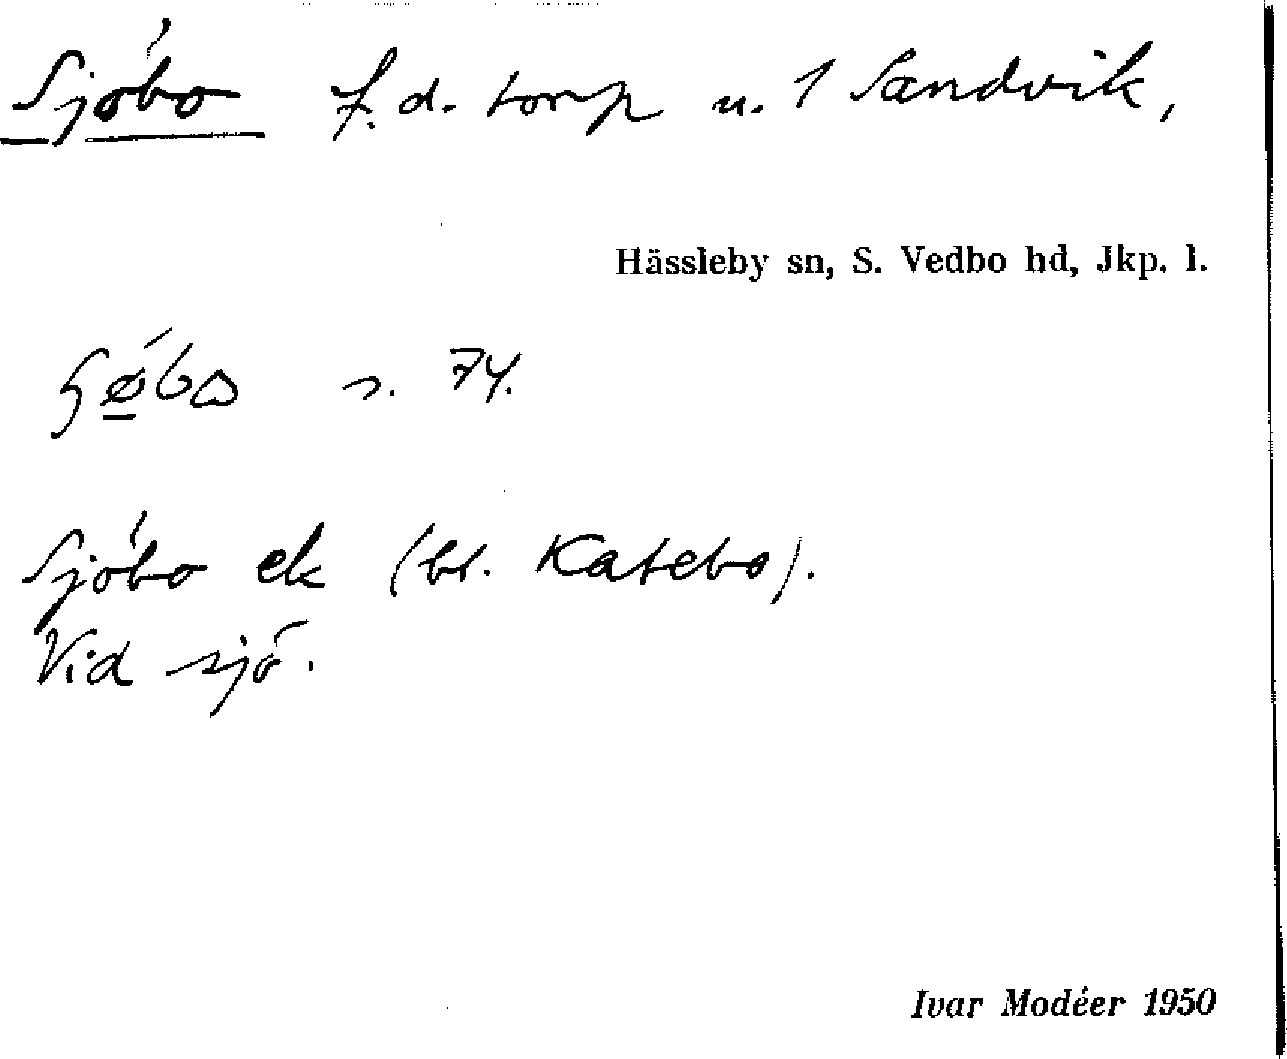 Sjöbo f.d. torp u. 1 Sandvik,
Hässleby sn, S. Vedbo hd, Jkp. l.
74.
Sjöbo ek (bl. Katebo).
Vid sjö.
Ivar Modéer 1950